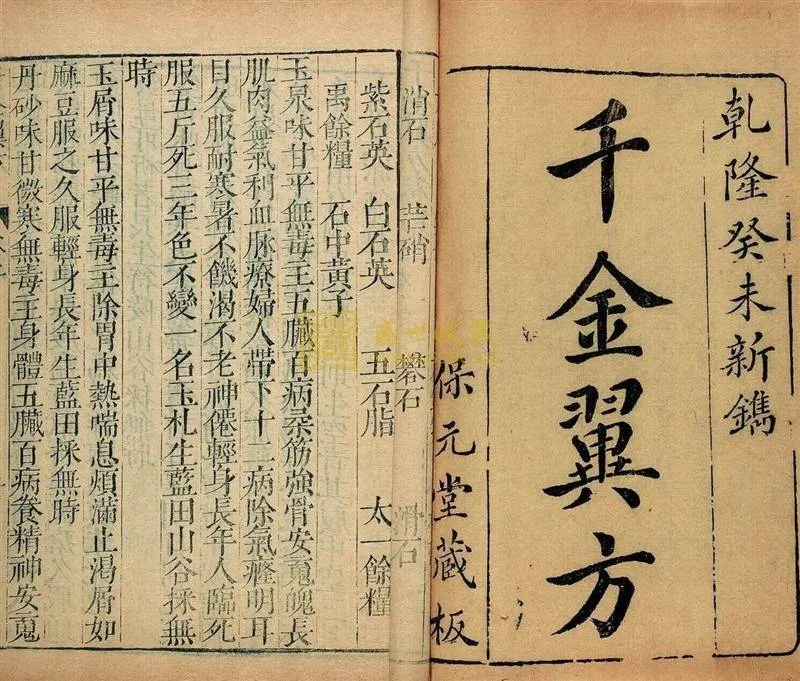 乾隆癸未新鐫
千金翼方
保元堂藏板
消石　芒硝　礬石　滑石
紫石英　白石英　五石脂　太一餘糧
禹餘糧　石中黃子
玉泉味甘平無毒主五臟百病柔筋強骨安䰟魄長
肌肉益氣利血脉療婦人帶下十二病除氣癃明耳
目久服耐寒暑不饑渴不老神僊輕身長年人臨死
服五斤死三年色不變一名玉札生藍田山谷採無
時
玉屑味甘平無毒主除胃中熱喘息煩滿止渴屑如
麻豆服之久服輕身長年生藍田採無時
丹砂味甘微寒無毒主身體五臟百病養精神安䰟